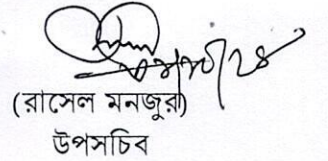 (রাসেল মনজুরা)
উপসচিব